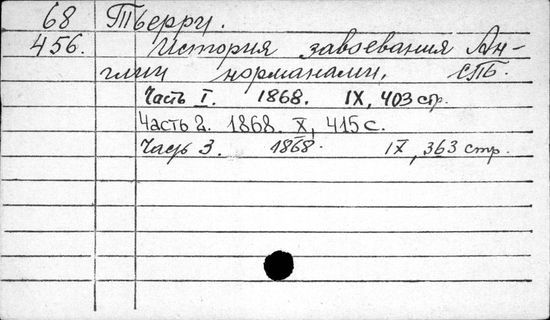 68 Тьерри.
456. История завоевания Ан-
глии норманами, СПБ.
Часть I. 1868. IX, 403 стр.
Часть 2. 1868. X, 415 с.
Часть 3. 1868. IX, 363 стр.